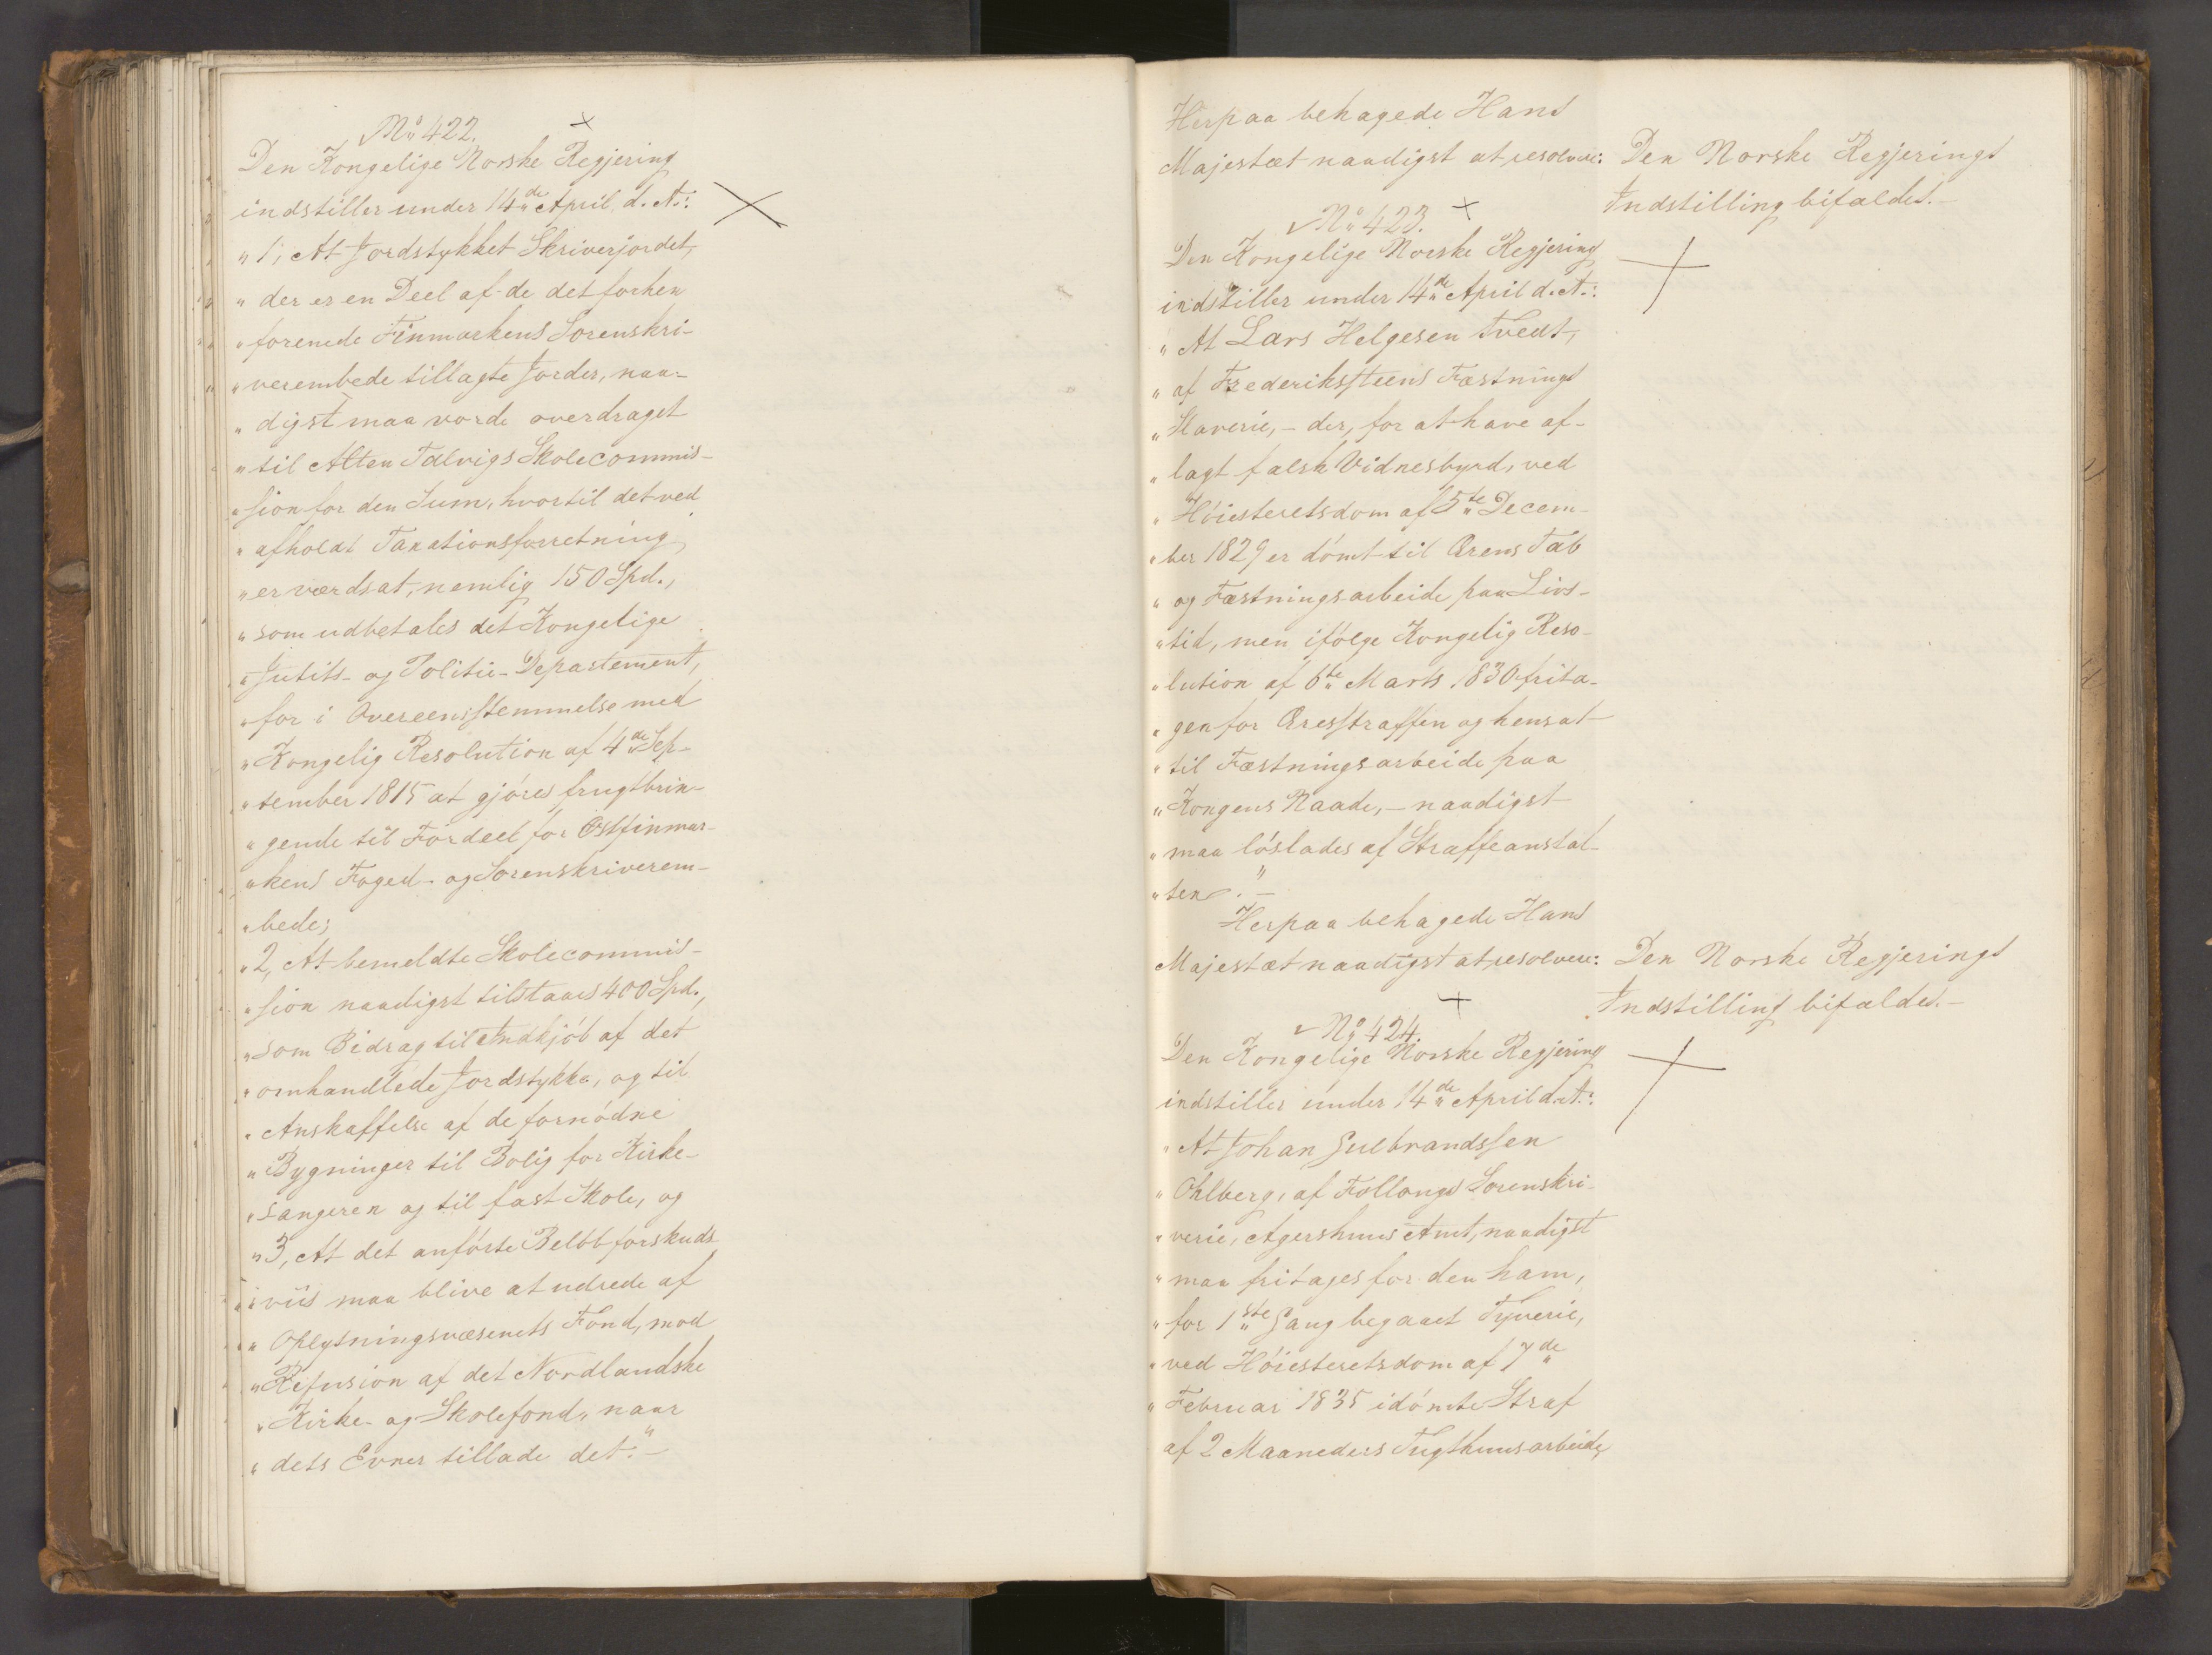 No 422.
Den Kongelige Norske Regjering
indstiller under 14de April d. A.:
"1, At Jordstykket Skriverjordet,
"der er en Deel af de det forhen
"forenede Finmarkens Sorenskri-
"verembede tillagte Jorder, naa-
"digst maa vorde overdraget
"til Alten Talvigs Skolecommis-
"sion for den Sum, hvortil det ved
"afholdt Taxationsforretning
"er værdsat, nemlig 150 Spd.,
"som udbetales det Kongelige
"Jutits- og Politie-Departement,
"for i Overeensstemmelse med
"Kongelig Resolution af 4de Sep-
"tember 1815 at gjöres frugtbrin-
"gende til Fordeel for Østfinmar-
"kens Foged- og Sorenskriverem-
"bede;
"2, At bemeldte Skolecommis-
"sion naadigst tilstaaes 400 Spd.,
"som Bidrag til Indkjöb af det
"omhandlede Jordstykke, og til
"Anskaffelse af de fornödne
"Bygninger til Bolig for Kirke-
"sangeren og til fast Skole, og
"3, At det anförte Belöb forskuds
"viis maa blive at udrede af
"Oplysningsvæsenets Fond, mod
"Refusion af det Nordlandske
"Kirke- og Skolefond, naar
"dets Evner tillade det." –
Herpaa behagede Hans
Majestæt naadigst at resolvere: Den Norske Regjerings
Indstilling bifaldes. –
No 423.
Den Kongelige Norske Regjering
indstiller under 14de April d. A.:
"At Lars Helgesen Tvedt,
"af Frederikssteens Fæstnings
"Slaverie, – der, for at have af-
"lagt falsk Vidnesbyrd, ved
"Höiesteretsdom af 5te Decem-
"ber 1829 er dömt til Ærens Tab
"og Fæstningsarbeide paa Livs-
"tid, men ifölge Kongelig Reso-
"lution af 6te Marts 1830 frita-
"gen for Æresstraffen og hensat
"til Fæstningsarbeide paa
"Kongens Naade, – naadigst
"maa löslades af Straffeanstal-
"ten." –
Herpaa behagede Hans
Majestæt naadigst at resolvere: Den Norske Regjerings
Indstilling bifaldes. –
No 424.
Den Kongelige Norske Regjering
indstiller under 14de April d. A.:
"At Johan Gulbrandssen
"Ohlberg, af Follougs Sorenskri-
"verie, Agershuus Amt, naadigst
"maa fritages for den ham,
"for 1ste Gang begaaet Tyverie,
"ved Höiesteretsdom af 7de
"Februar 1835 idömte Straf
af 2 Maaneders Tugthuusarbeide,